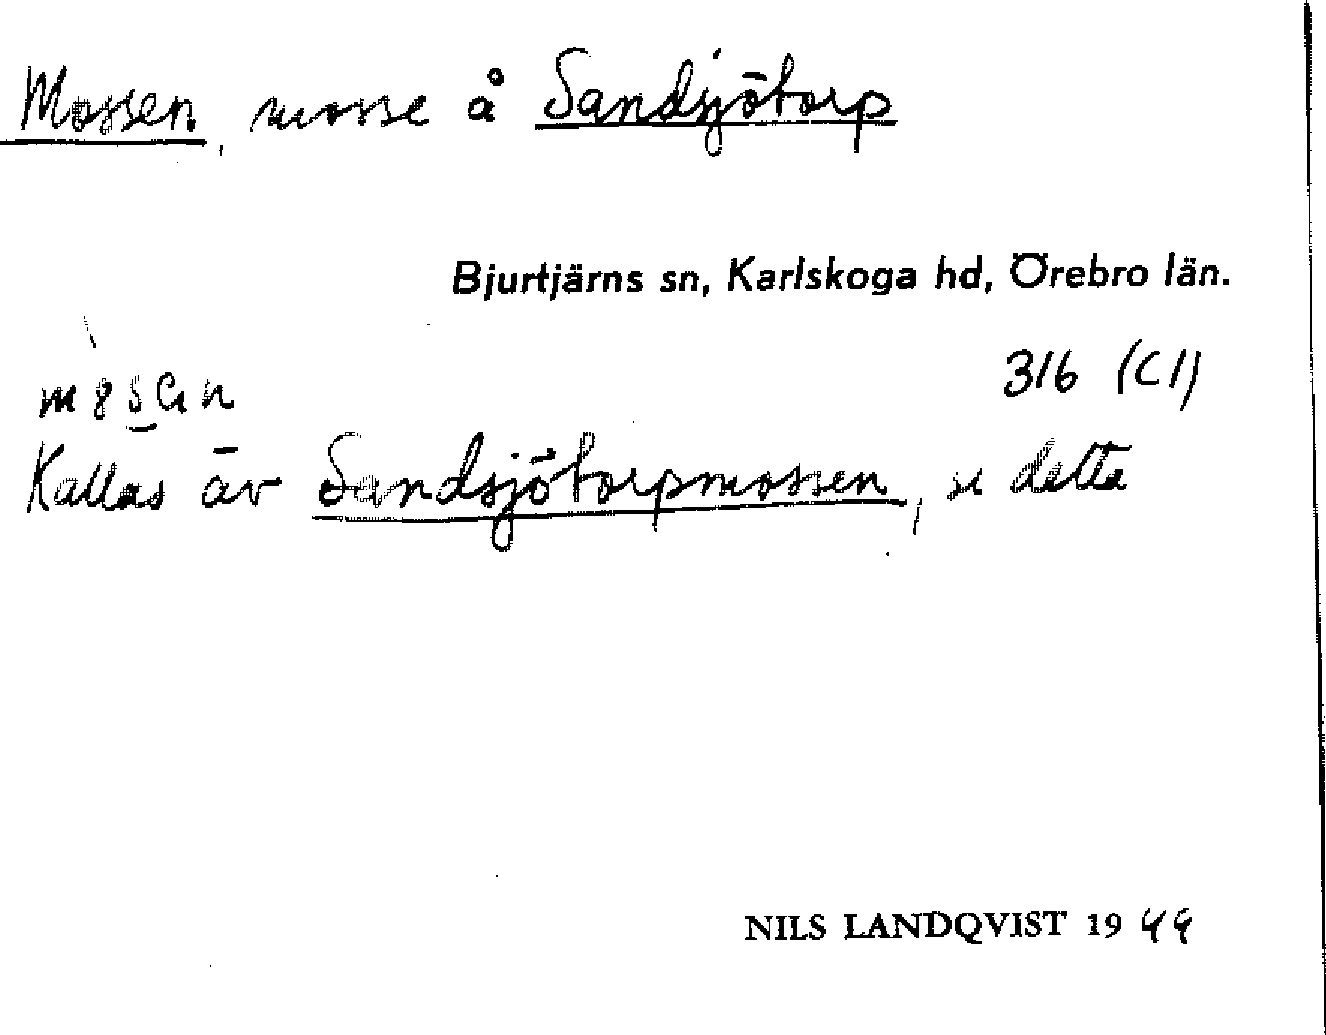 Mossen, mosse å Sandsjötorp
Bjurtjärns sn, Karlskoga hd, Örebro län.
316 (C1)
Kallas äv Sandsjötorpmossen, se detta
NILS LANDQVIST 1944